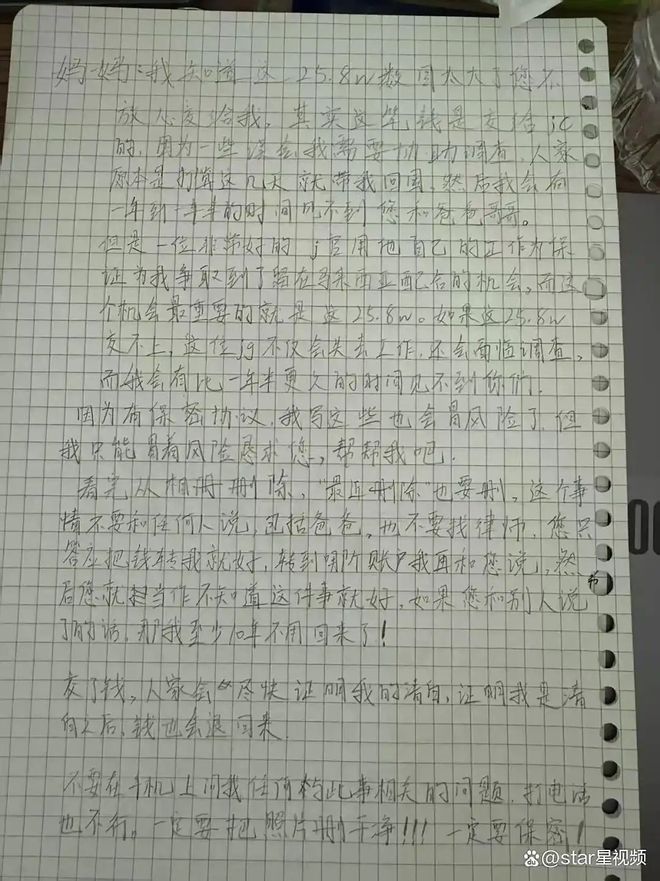 妈妈：我知道这25.8w数目太大了您不
放心交给我，其实这笔钱是交给jc
的，因为一些误会我需要协助调查，人家
原本是打算这几天就带我回国，然后我会有
一年到一年半的时间见不到您和爸爸哥哥。
但是一位非常好的j官用他自己的工作为保
证为我争取到了留在马来西亚配合的机会，而这
个机会最重要的就是这25.8w。如果这25.8w
交不上，这位jg不仅会失去工作，还会面临调查，
而我会有比一年半更久的时间见不到你们，
因为有保密协议，我写这些也会冒风险了，但
我只能冒着风险恳求您，帮帮我吧，
看完从相册删除，"最近删除"也要删，这个事
情不要和任何人说，包括爸爸，也不要找律师，您只
答应把钱转我就好，转到哪个账户我再和您说，然
后您就当作不知道这件事就好，如果您和别人说
了的话，那我至少10年不用回来了！
交了钱，人家会尽快证明我的清白，证明我是清
白之后，钱也会退回来
不要在手机上问我任何与此事相关的问题，打电话
也不行。一定要把照片删干净!!! 一定要保密！
@star星视频